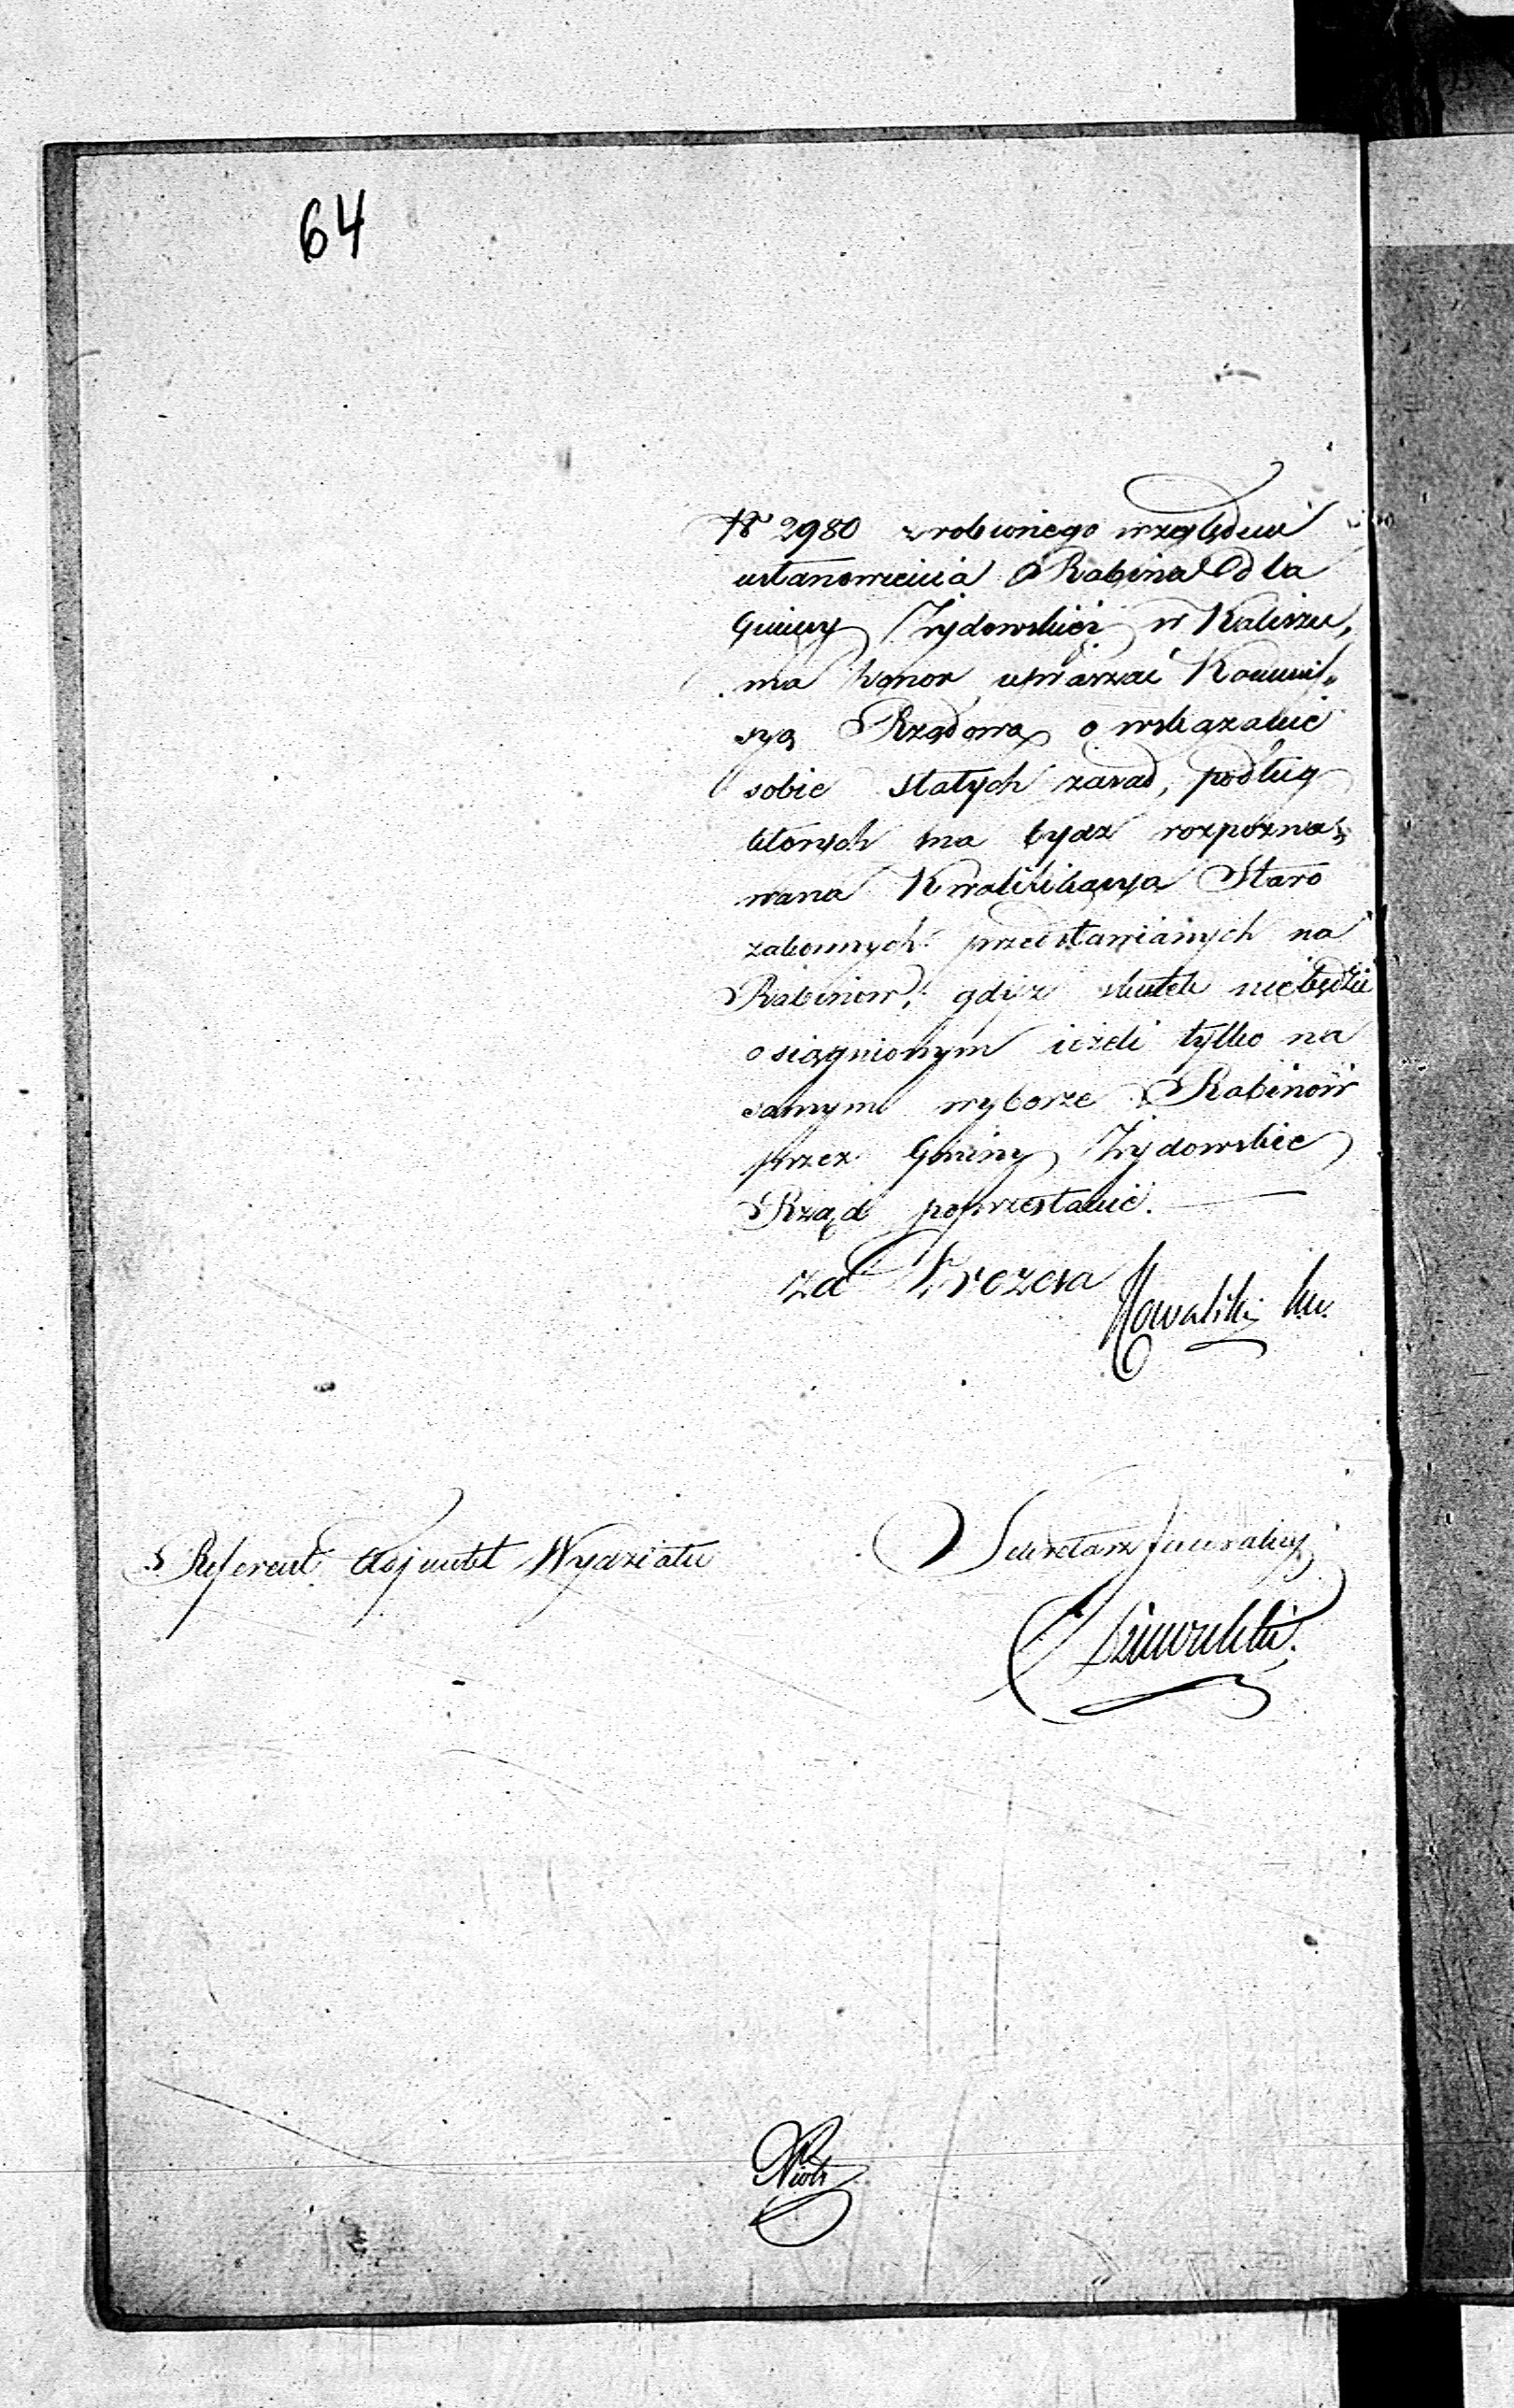 64
Nr 2980 zrobionego względem
ustanowienia Rabina dla
Gminy Żydowskiéj w Kaliszu,
ma honor upraszać Kommis„
syą Rządową o wskazanie
sobie stałych zasad, podług
których ma bydź rozpozna„
wana Kwalifikacya Staro
zakonnych przedstawianych na
Rabinów, gdyż skutek niebędzie
osiągnionym ieżeli tylko na
samym wyborze Rabinów
przez Gminy Żydowskie
Rząd poprzestanie. —
za Prezesa
Kowalski
Referent Adjunkt Wydziału
Sekretarz Jeneralny